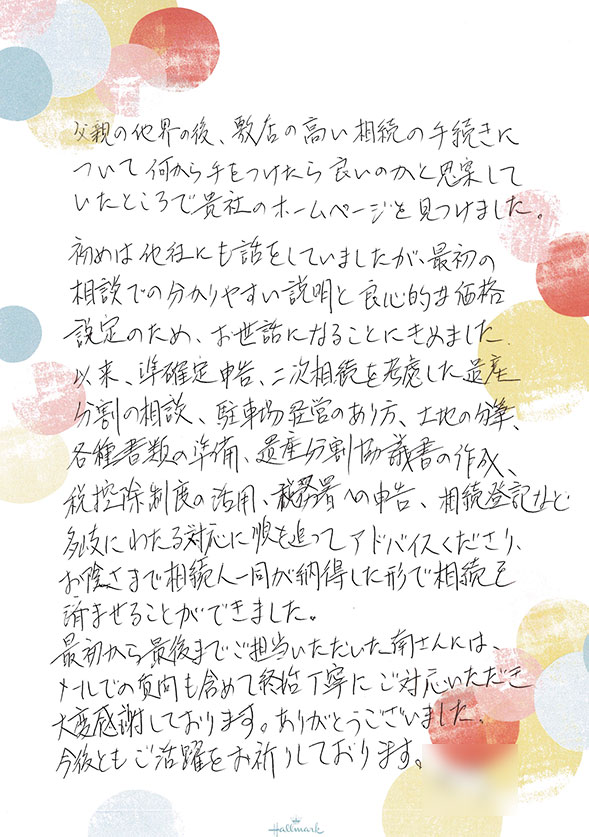 父親の他界の後、敷居の高い相続の手続きに
ついて何から手をつけたら良いのかと思案して
いたところで貴社のホームページを見つけました。
初めは他社にも話をしていましたが、最初の
相談での分かりやすい説明と良心的な価格
設定のため、お世話になることにきめました。
以来、準確定申告、二次相続を考慮した遺産
分割の相談、駐車場経営のあり方、土地の分筆、
各種書類の準備、遺産分割協議書の作成、
税控除制度の活用、税務署への申告、相続登記など
多岐にわたる対応に順を追ってアドバイスくださり、
お陰さまで相続人一同が納得した形で相続を
済ませることができました。
最初から最後までご担当いただいた南さんには、
メールでの質問も含めて終始丁寧にご対応いただき
大変感謝しております。ありがとうございました。
今後ともご活躍をお祈りしております。
Hallmark